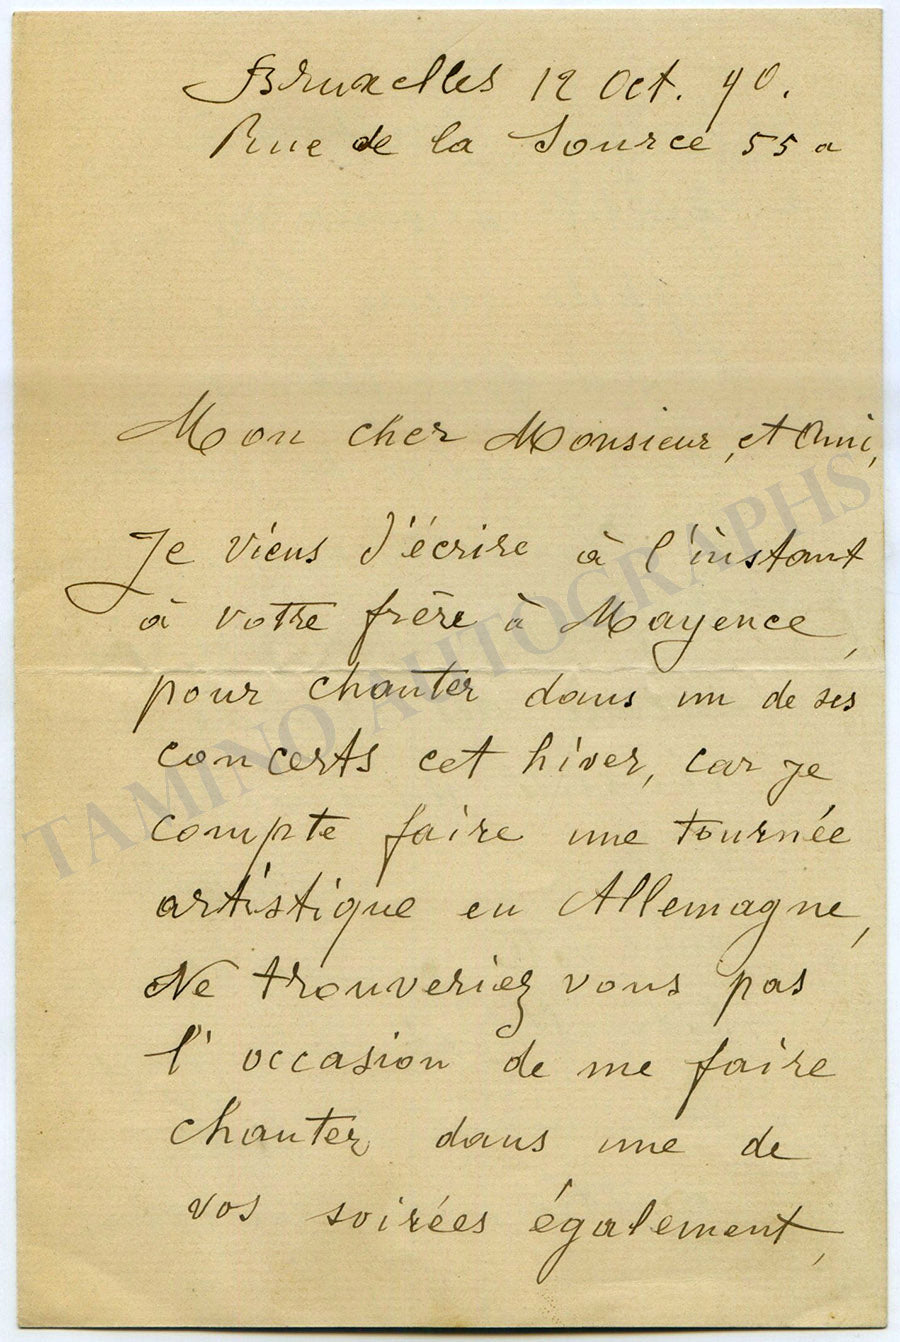 Bruxelles 12 Oct. 90.
Rue de la Source 55 a
Mon cher Monsieur, et Ami,
Je viens d'écrire à l'instant
à votre frère à Mayence,
pour chanter dans un de ses
concerts cet hiver, car je
compte faire une tournée
artistique en Allemagne,
Ne trouveriez vous pas
l'occasion de me faire
chanter dans une de
vos soirées également,
TAMINO AUTOGRAPHS